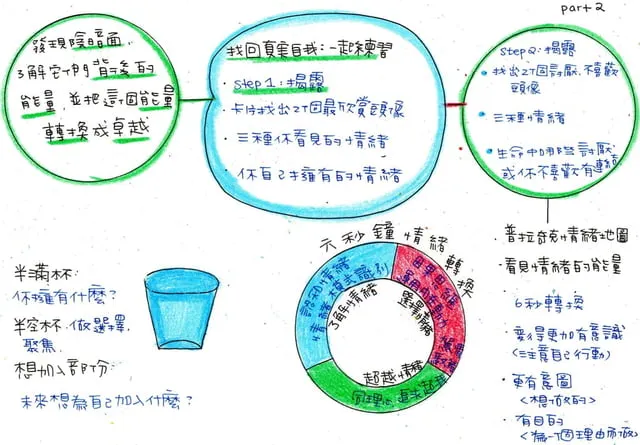 part 2
發現陰暗面
了解它們背後的
能量,並把這個能量
轉換成卓越
找回真實自我:一起練習
step 1:揭露
卡片找出2個最欣賞頭像
三種你看見的情緒
你自己擁有的情緒
step 2:揭露
找出2個討厭、不喜歡
頭像
三種情緒
生命中哪些討厭
或你不喜歡有連結
普拉奇克情緒地圖
看見情緒的能量
6秒轉換
變得更加有意識
(注意自己行動)
更有意圖
<想做的>
有目的
<為一個理由而做>
半滿杯:
你擁有什麼?
半容杯:做選擇
聚焦
想加入部份:
未來想為自己加入什麼?
六秒鐘情緒轉換
認知情緒
情緒模式識別
了解情緒
選擇情緒
超越情緒
同理心